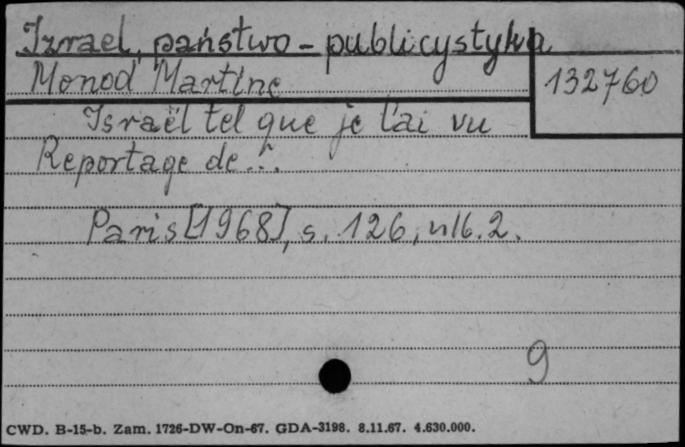 Izrael, państwo - publicystyka
Monod Martine
132760
Israël tel que je l'ai vu
Reportage de...
Paris [1968], s. 126, nlb. 2.
9
CWD. B-15-b. Zam. 1726-DW-On-67. GDA-3198. 8.11.67. 4.630.000.